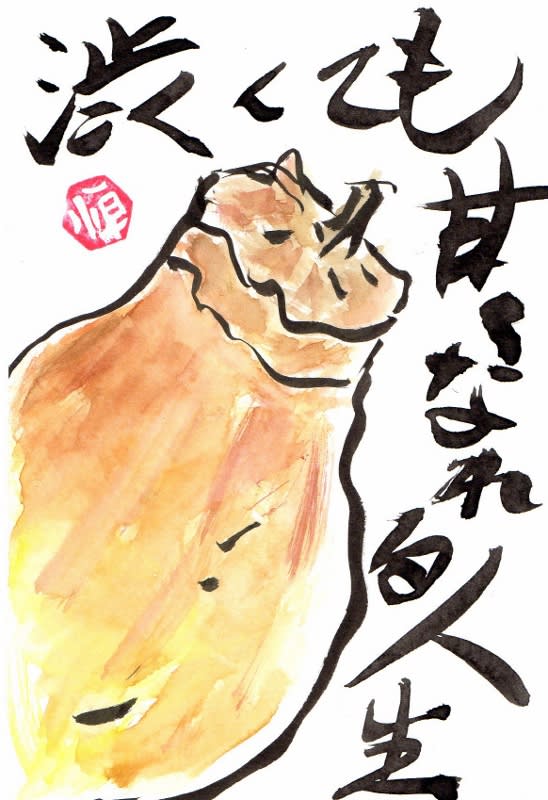 渋くても
甘くなれ
人生